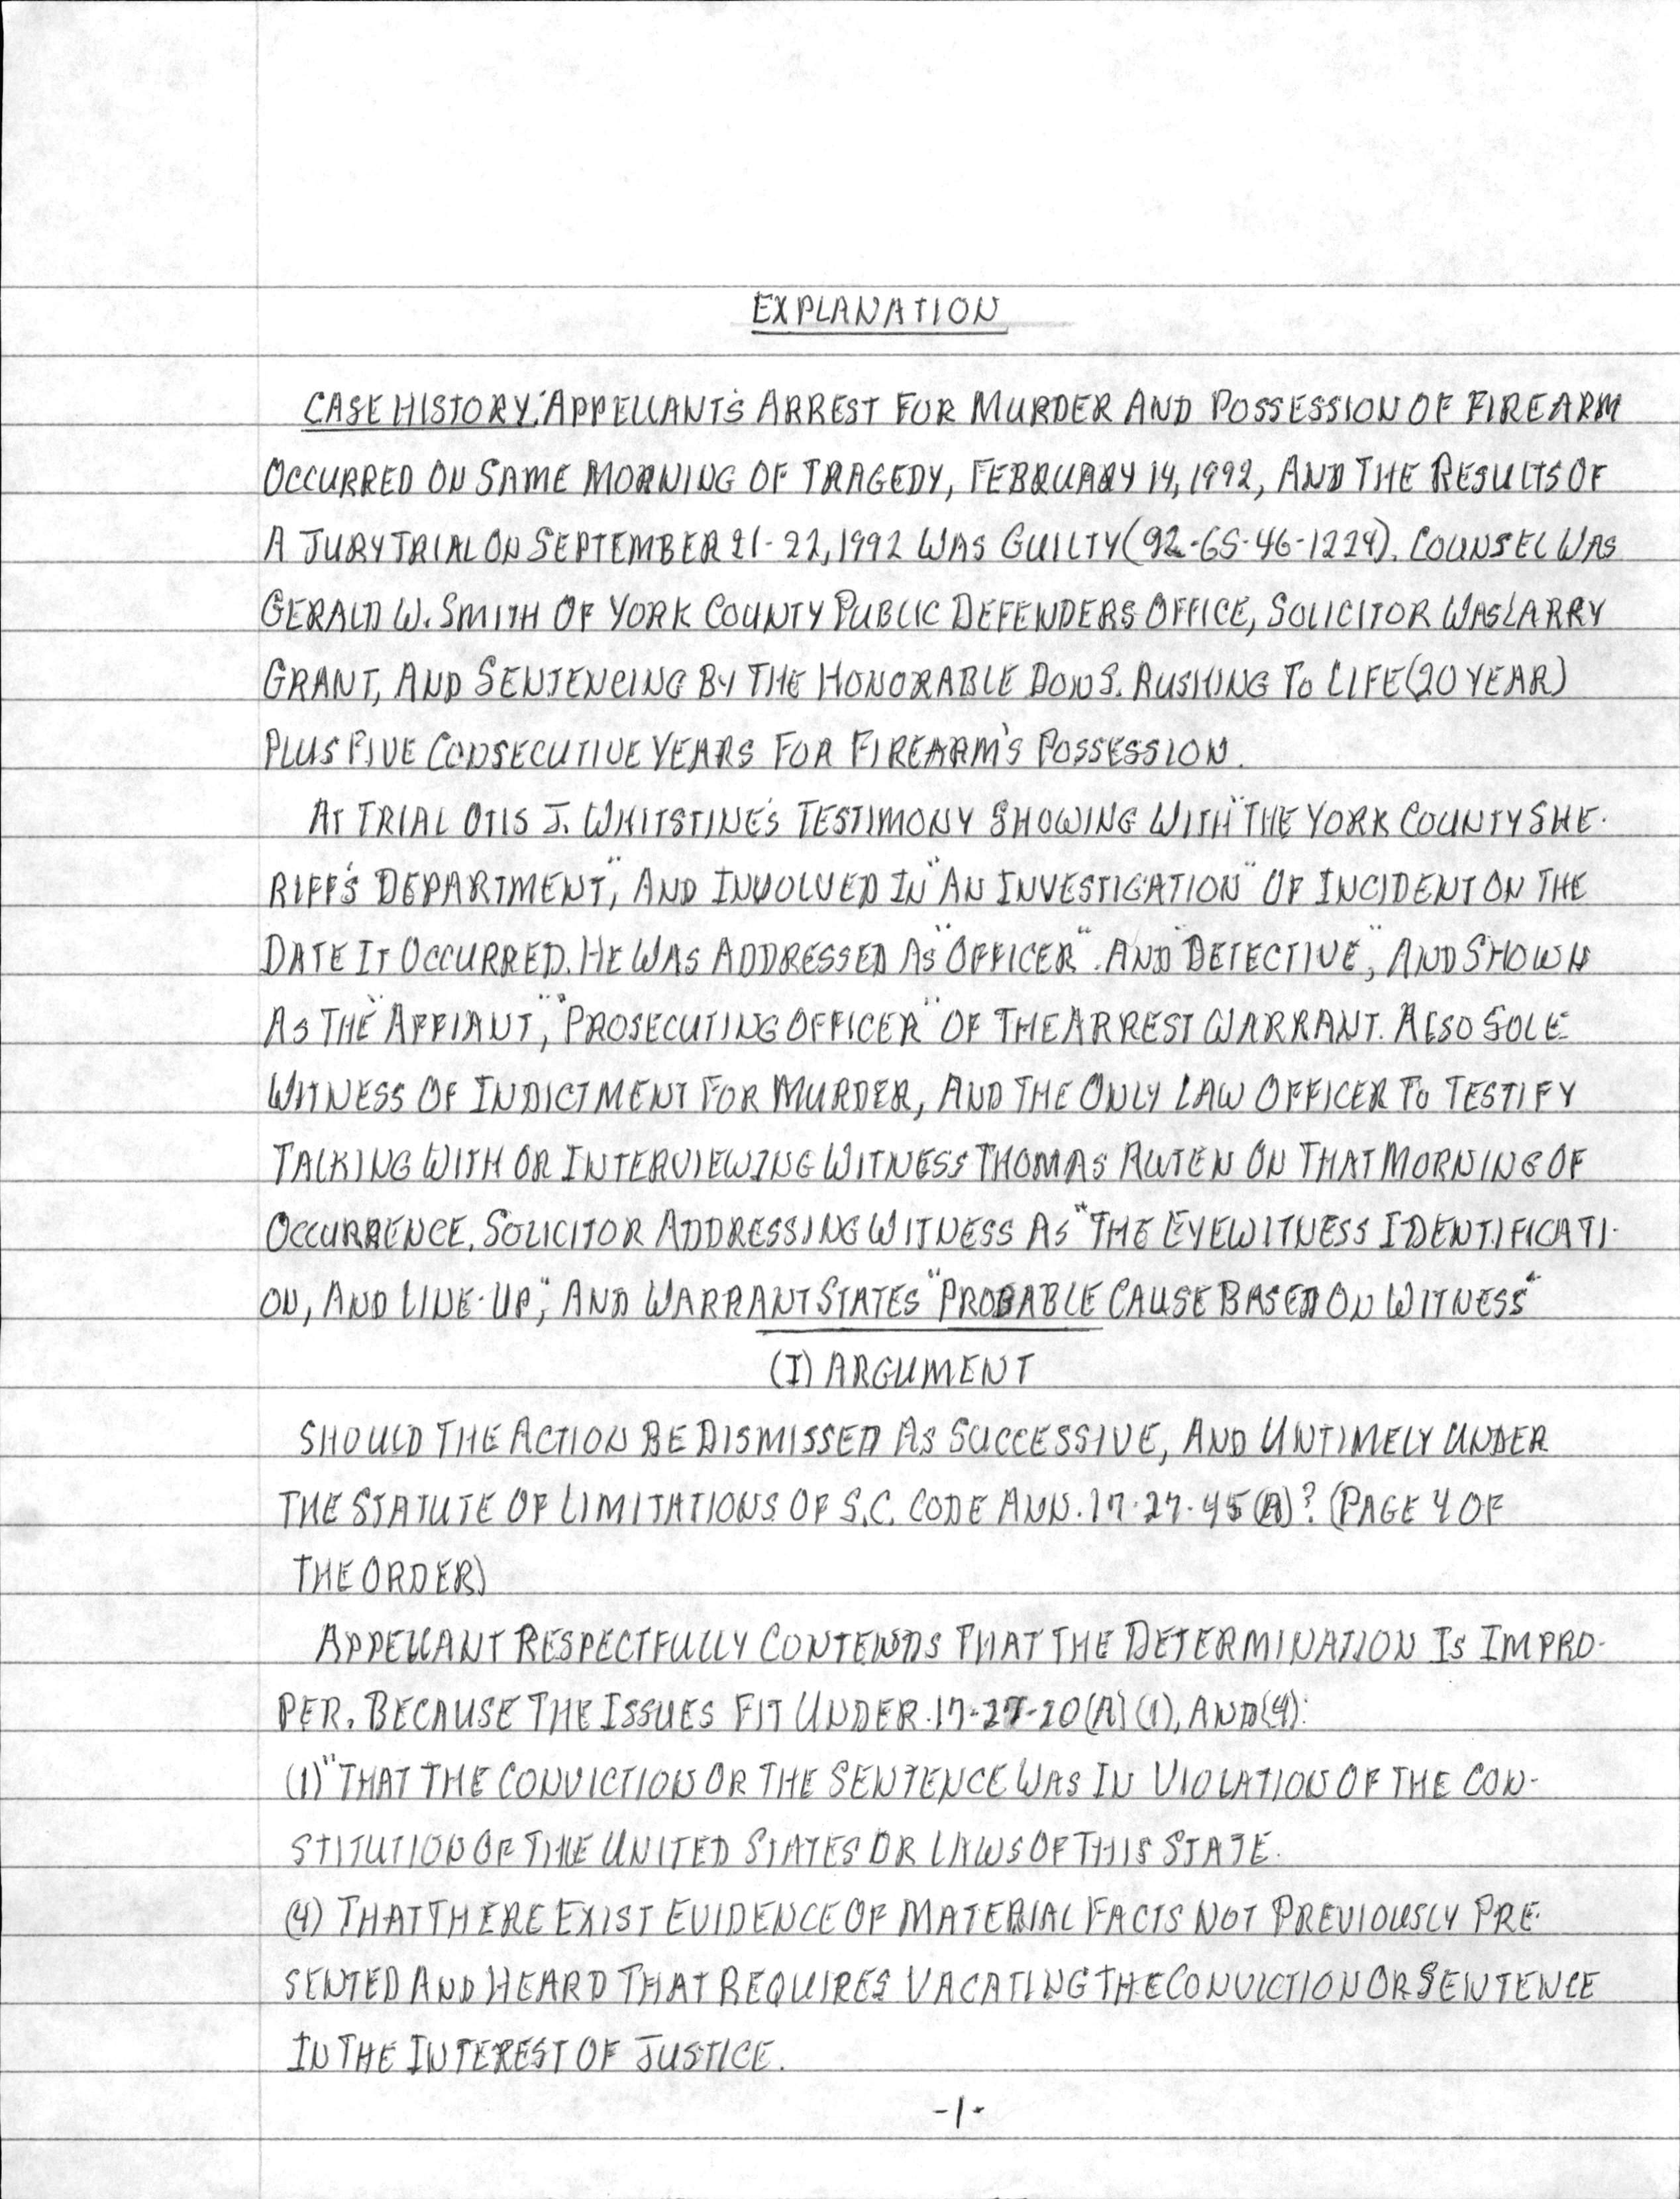 EXPLANATION
CASE HISTORY: APPELLANT'S ARREST FOR MURDER AND POSSESSION OF FIREARM
OCCURRED ON SAME MORNING OF TRAGEDY, FEBRUARY 14, 1992, AND THE RESULTS OF
A JURY TRIAL ON SEPTEMBER 21-22, 1992 WAS GUILTY (92-GS-46-1224). COUNSEL WAS
GERALD W. SMITH OF YORK COUNTY PUBLIC DEFENDERS OFFICE, SOLICITOR WAS LARRY
GRANT, AND SENTENCING BY THE HONORABLE DON S. RUSHING TO LIFE (20 YEAR)
PLUS FIVE CONSECUTIVE YEARS FOR FIREARM'S POSSESSION.
AT TRIAL OTIS J. WHITSTINE'S TESTIMONY SHOWING WITH "THE YORK COUNTY SHE-
RIFF'S DEPARTMENT", AND INVOLVED IN "AN INVESTIGATION" OF INCIDENT ON THE
DATE IT OCCURRED. HE WAS ADDRESSED AS "OFFICER". AND "DETECTIVE", AND SHOWN
AS THE "AFFIANT", "PROSECUTING OFFICER" OF THE ARREST WARRANT. ALSO SOLE
WITNESS OF INDICTMENT FOR MURDER, AND THE ONLY LAW OFFICER TO TESTIFY
TALKING WITH OR INTERVIEWING WITNESS THOMAS AUTEN ON THAT MORNING OF
OCCURRENCE. SOLICITOR ADDRESSING WITNESS AS "THE EYEWITNESS IDENTIFICATI-
ON, AND LINE-UP", AND WARRANT STATES "PROBABLE CAUSE BASED ON WITNESS"
(I) ARGUMENT
SHOULD THE ACTION BE DISMISSED AS SUCCESSIVE, AND UNTIMELY UNDER
THE STATUTE OF LIMITATIONS OF S.C. CODE ANN. 17-27-45(A)? (PAGE 4 OF
THE ORDER)
APPELLANT RESPECTFULLY CONTENDS THAT THE DETERMINATION IS IMPRO-
PER. BECAUSE THE ISSUES FIT UNDER 17-27-20(A)(1), AND (4):
(1) "THAT THE CONVICTION OR THE SENTENCE WAS IN VIOLATION OF THE CON-
STITUTION OF THE UNITED STATES OR LAWS OF THIS STATE.
(4) THAT THERE EXIST EVIDENCE OF MATERIAL FACTS NOT PREVIOUSLY PRE-
SENTED AND HEARD THAT REQUIRES VACATING THE CONVICTION OR SENTENCE
IN THE INTEREST OF JUSTICE.
-1-